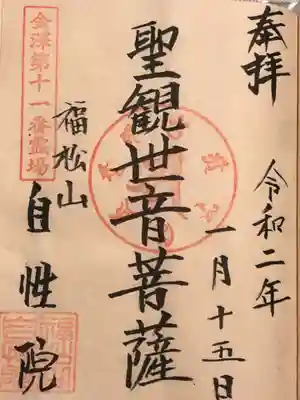 奉拝
令和二年
一月十五日
聖観世音菩薩
福松山
自性院
金澤第十一番霊場